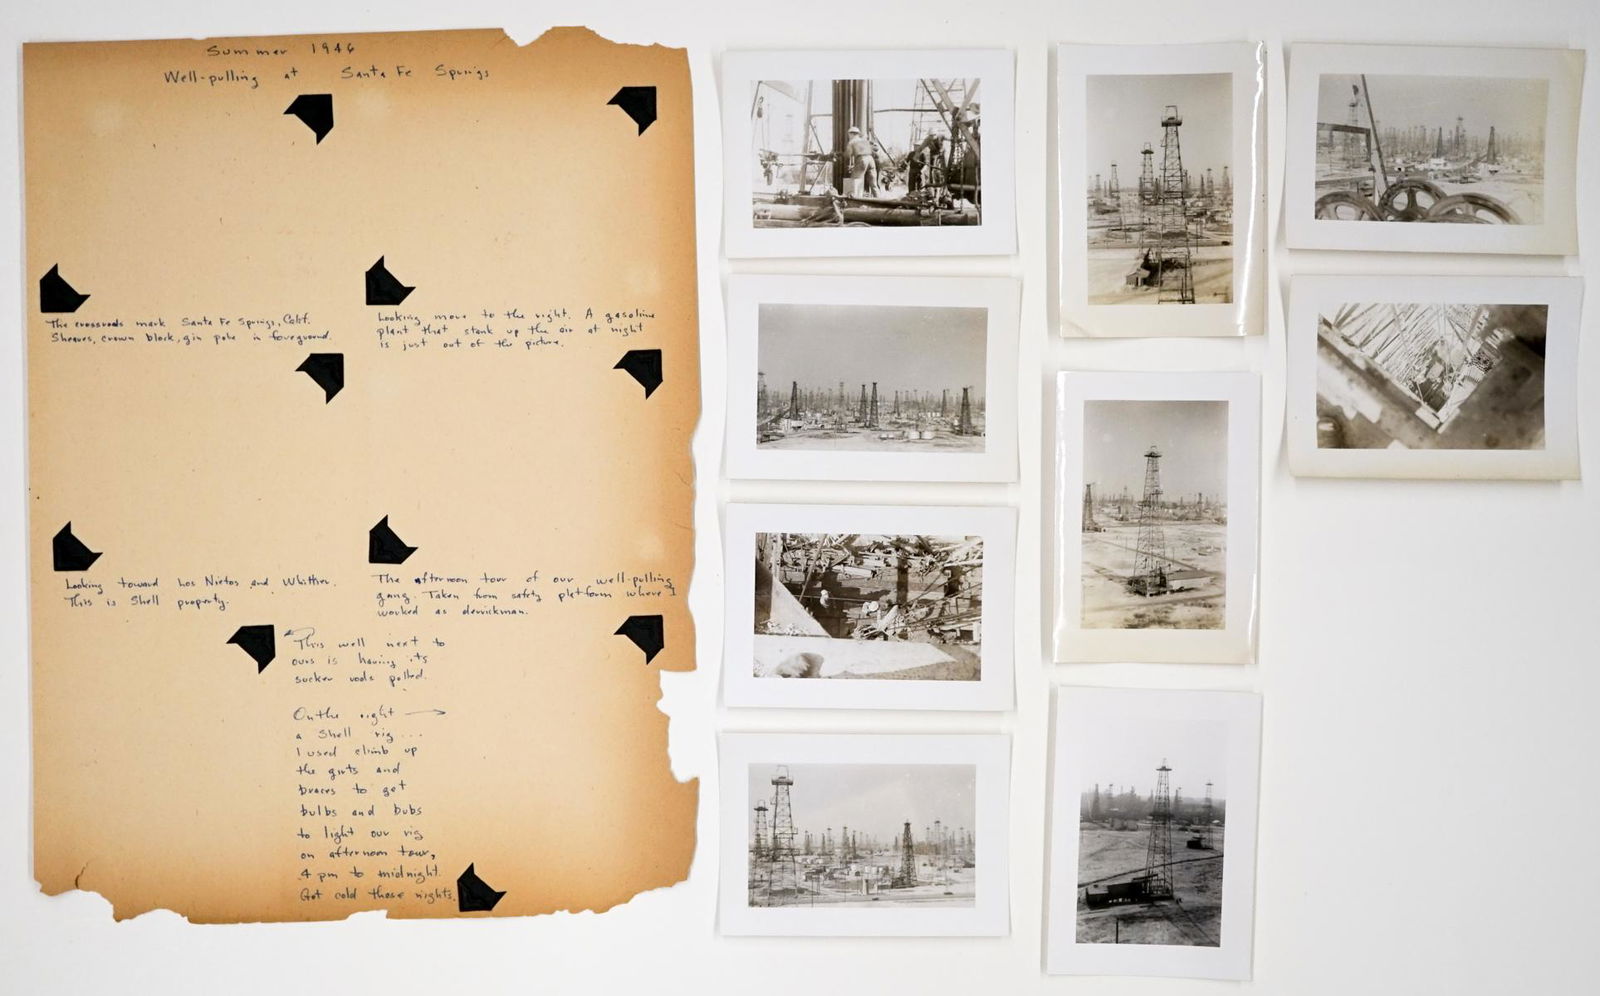 Summer 1946
Well-pulling at Santa Fe Springs
The crossroads mark Santa Fe Springs, Calif.
Sheaves, crown block, gin pole in foreground.
Looking more to the right. A gasoline
plant that stank up the air at night
is just out of the picture.
Looking toward Los Nietos and Whittier.
This is Shell property.
The afternoon tour of our well-pulling
gang. Taken from safety platform where I
worked as derrickman.
This well next to
ours is having its
sucker rods pulled.
On the right →
a Shell rig...
I used climb up
the girts and
braces to get
bulbs and bubs
to light our rig
on afternoon tour,
4 pm to midnight.
Got cold those nights.